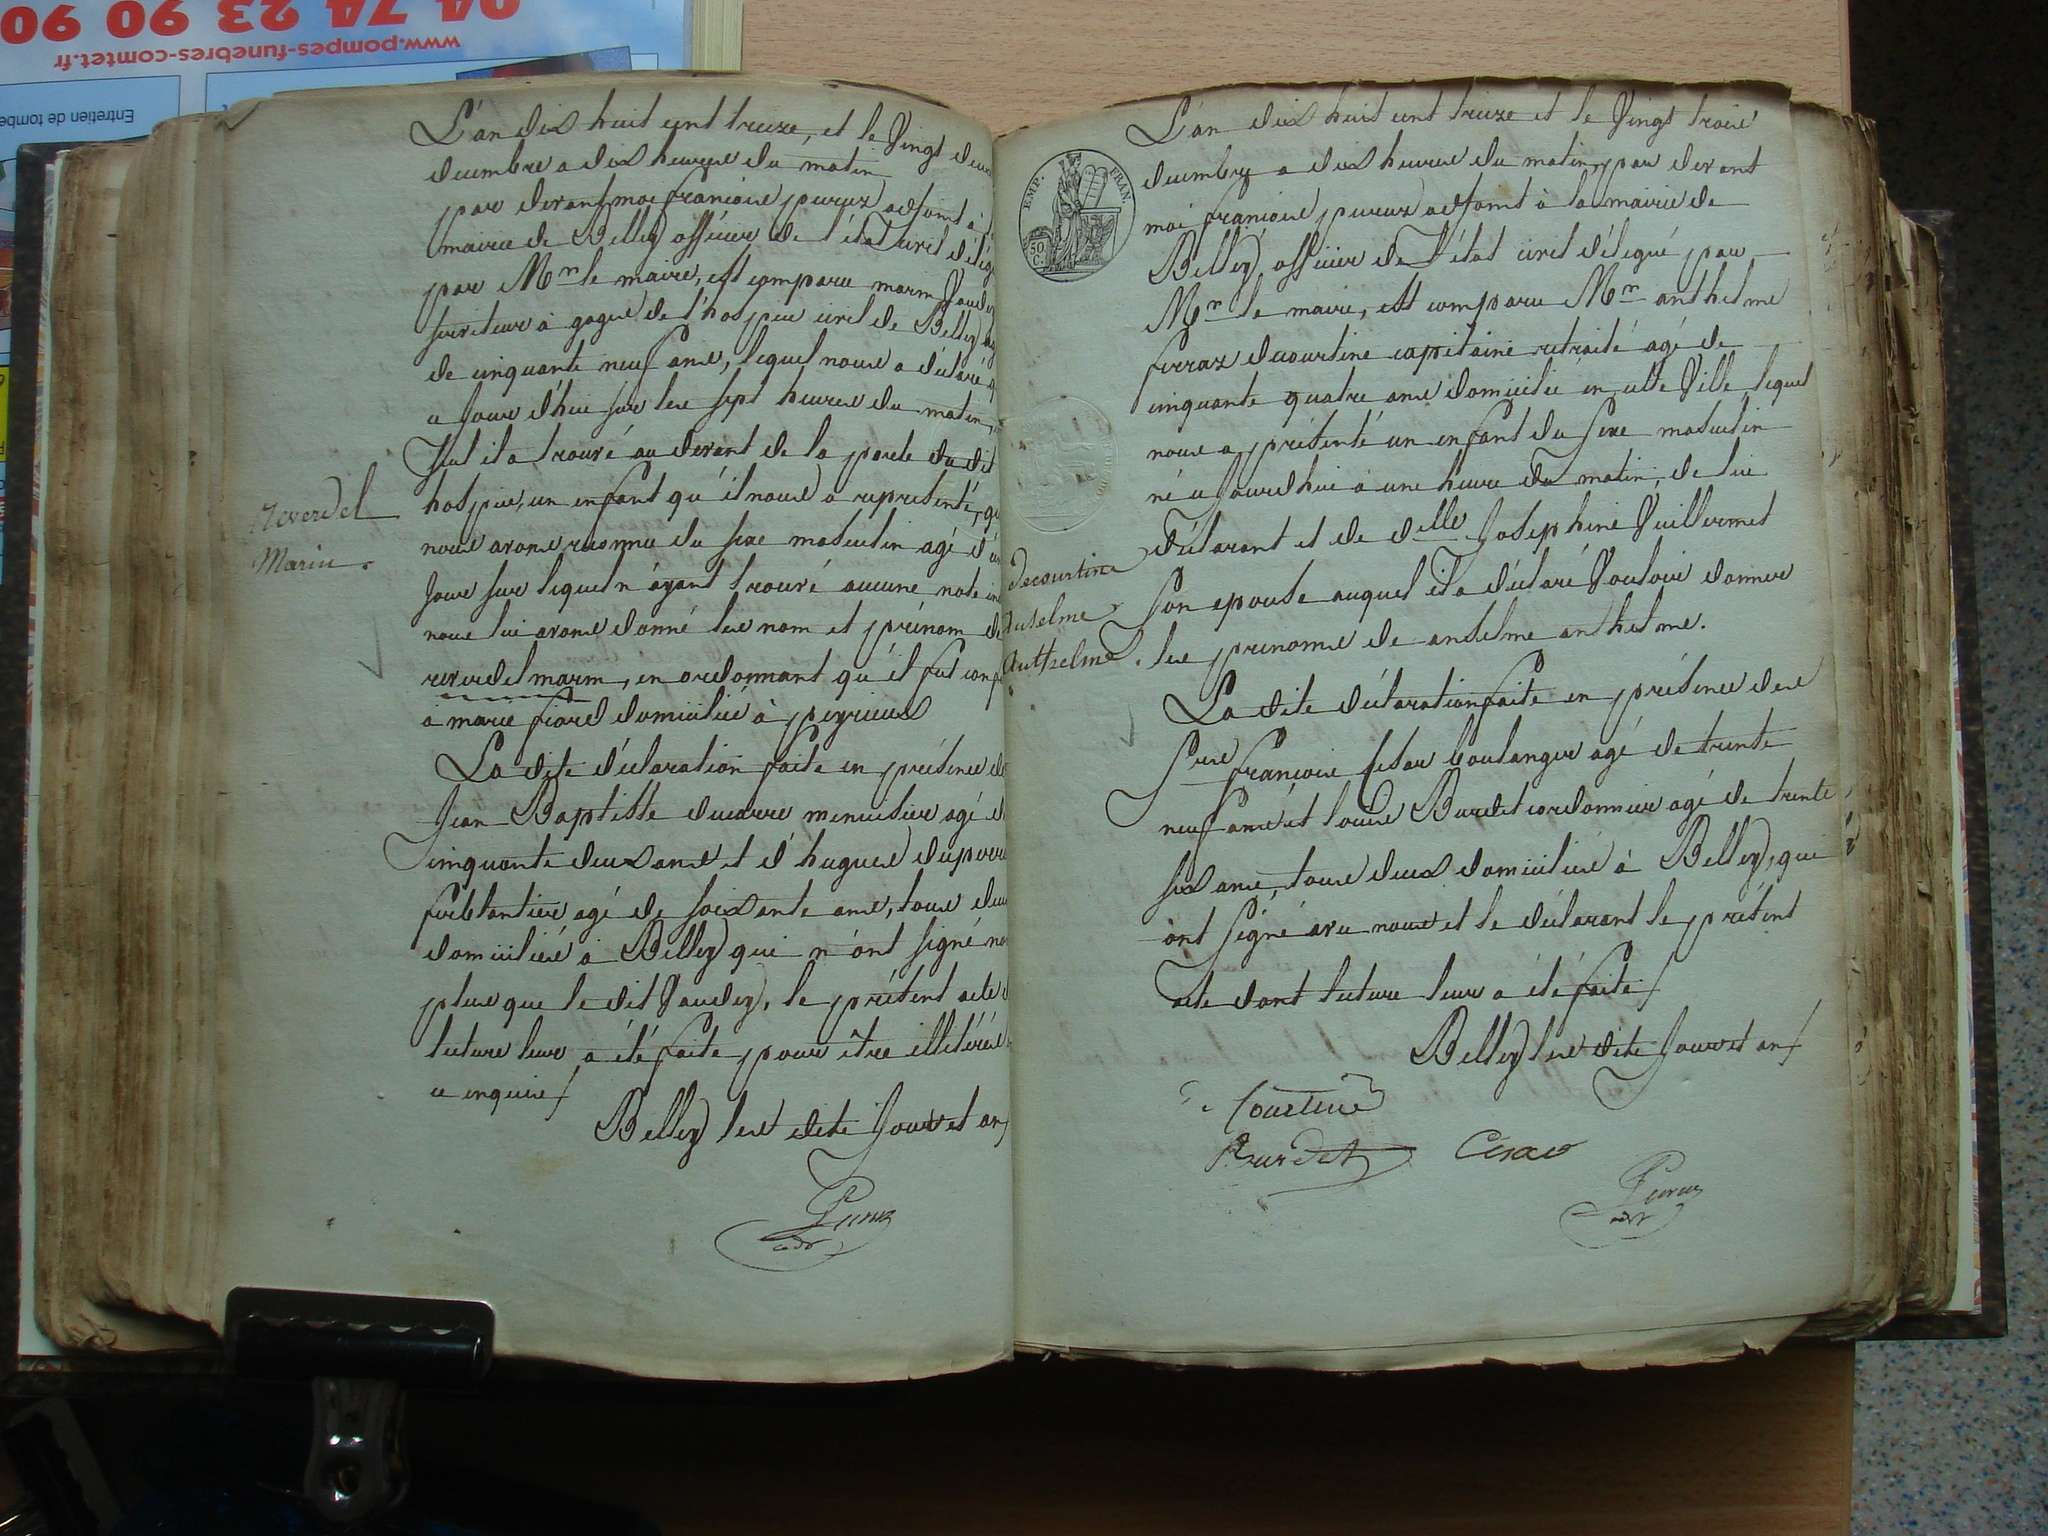 04 74 23 90 90
www.pompes-funebres-comtet.fr
Entretien de tombe
L'an dix huit cent treize, et le Vingt deux
décembre a dix heures du matin
par devant moi françois peruz adjoint à
mairie de Belley officier de l'état civil délég
par Mr le maire, est comparu marin
serviteur à gages de l'hospice civil de Belley
de cinquante neuf ans, lequel nous a déclaré q
a jour d'hui sur les sept heures du matin,
il a trouvé au devant de la porte du dit
hospice, un enfant qu'il nous a représenté, q
nous avons reconnu du sexe masculin agé d'un
jour sur lequel n'ayant trouvé aucune note
nous lui avons donné les nom et prénom de
reverdel marin, en ordonnant qu'il fut
à marie domiciliée à peyrieux
La dite déclaration faite en présence de
Jean Baptiste ducarre menuisier agé de
cinquante deux ans et d'hugues
ferblantier agé de soixante ans, tous deux
domiciliés à Belley qui n'ont signé no
plus que le dit le présent acte
lecture leur a été faite pour être illétérés
a enquis
Belley les dits jour et an
Peruz
adt
Reverdel
Marin.
EMP. FRAN.
50 C.
L'an dix huit cent treize et le Vingt trois
décembre a dix heures du matin, par devant
moi françois peruz adjoint à la mairie de
Belley, officier de l'état civil délegué par
Mr le maire, est comparu Mr anthelme
ferraz decourtine capitaine retraité agé de
cinquante quatre ans domicilié en cette Ville lequel
nous a présenté un enfant du sexe masculin
né aujourd'hui à une heure du matin, de lui
déclarant et de delle Josephine Vuillermet
son epouse auquel il a déclaré Vouloir donner
les prenoms de anselme anthelme.
La dite déclaration faite en présence des
Srs françois boulanger agé de trente
neuf ans et louis Burdet cordonnier agé de trente
six ans, tous deux domiciliés à Belley, qui
ont signé avec nous et le déclarant le présent
acte dont lecture leur a été faite
Belley les dits jour et an
Courtine
Burdet
Peruz
adt
decourtine
Anselme
Anthelme.